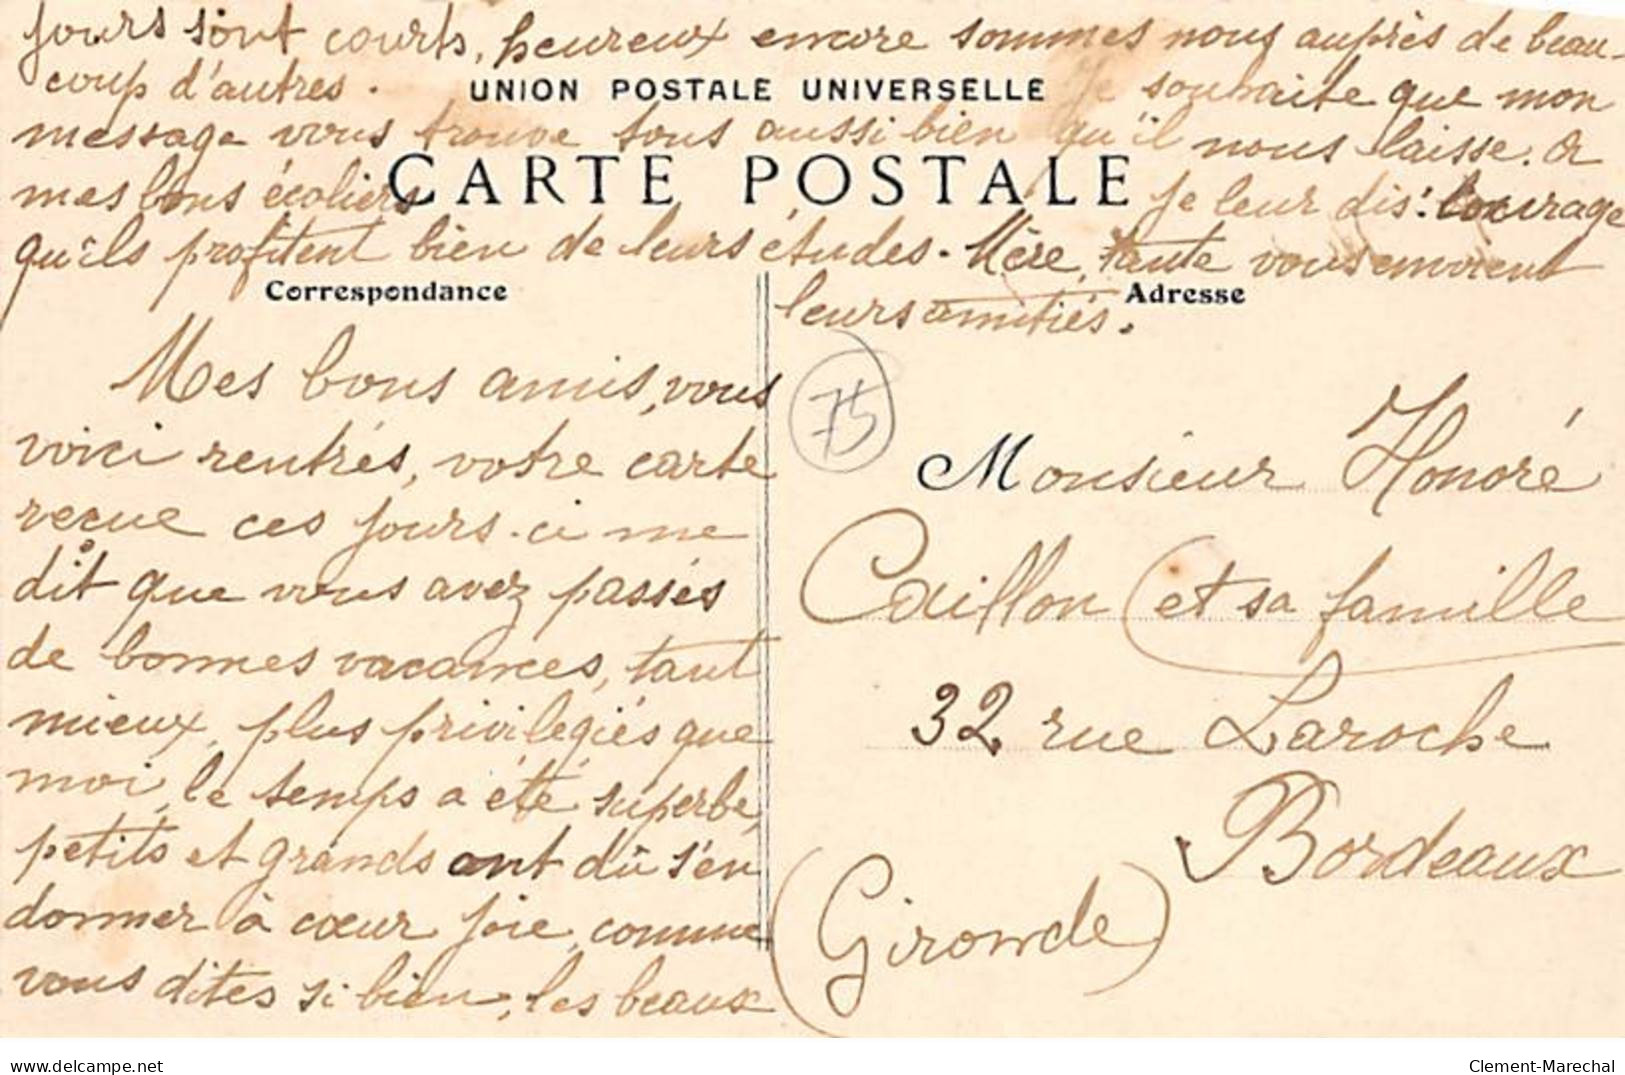 jours sont courts, heureux encore sommes nous auprès de beau-
coup d'autres. Je souhaite que mon
UNION POSTALE UNIVERSELLE
message vous trouve tous aussi bien qu'il nous laisse. A
CARTE POSTALE
mes bons écoliers je leur dis: courage
qu'ils profitent bien de leurs études. Mère, tante vous envoient
leurs amitiés.
Correspondance
Adresse
Mes bons amis, vous
voici rentrés, votre carte
reçue ces jours-ci me
dit que vous avez passés
de bonnes vacances, tant
mieux, plus privilégiés que
moi, le temps a été superbe,
petits et grands ont dû s'en
donner à cœur joie, comme
vous dites si bien, les beaux
75
Monsieur Honoré
Caillon (et sa famille
32 rue Laroche
Bordeaux
(Gironde)
www.delcampe.net
Clement-Marechal